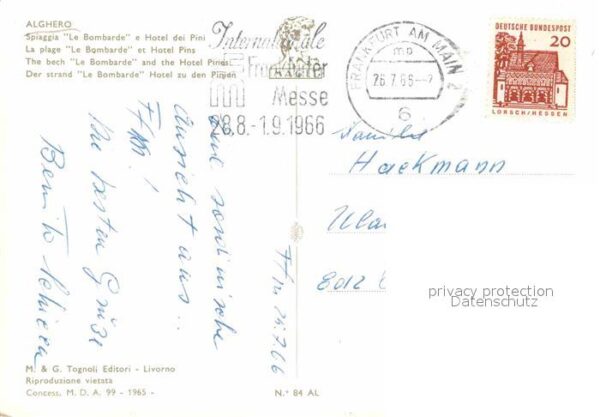 ALGHERO
Spiaggia "Le Bombarde" e Hotel dei Pini
La plage "Le Bombarde" et Hotel Pins
The bech "Le Bombarde" and the Hotel Pines
Der strand "Le Bombarde" Hotel zu den Pinien
Internationale
Frankfurter
Messe
28.8.-1.9.1966
FRANKFURT AM MAIN 2
mp
26.7.66
6
DEUTSCHE BUNDESPOST
20
LORSCH/HESSEN
Eine sardinische
Ansicht aus
Ffm!
Die besten Grüße
Ffm 25.7.66
Familie
Hackmann
privacy protection
Datenschutz
M. & G. Tognoli Editori - Livorno
Riproduzione vietata
Concess. M. D. A. 99 - 1965 -
N.° 84 AL